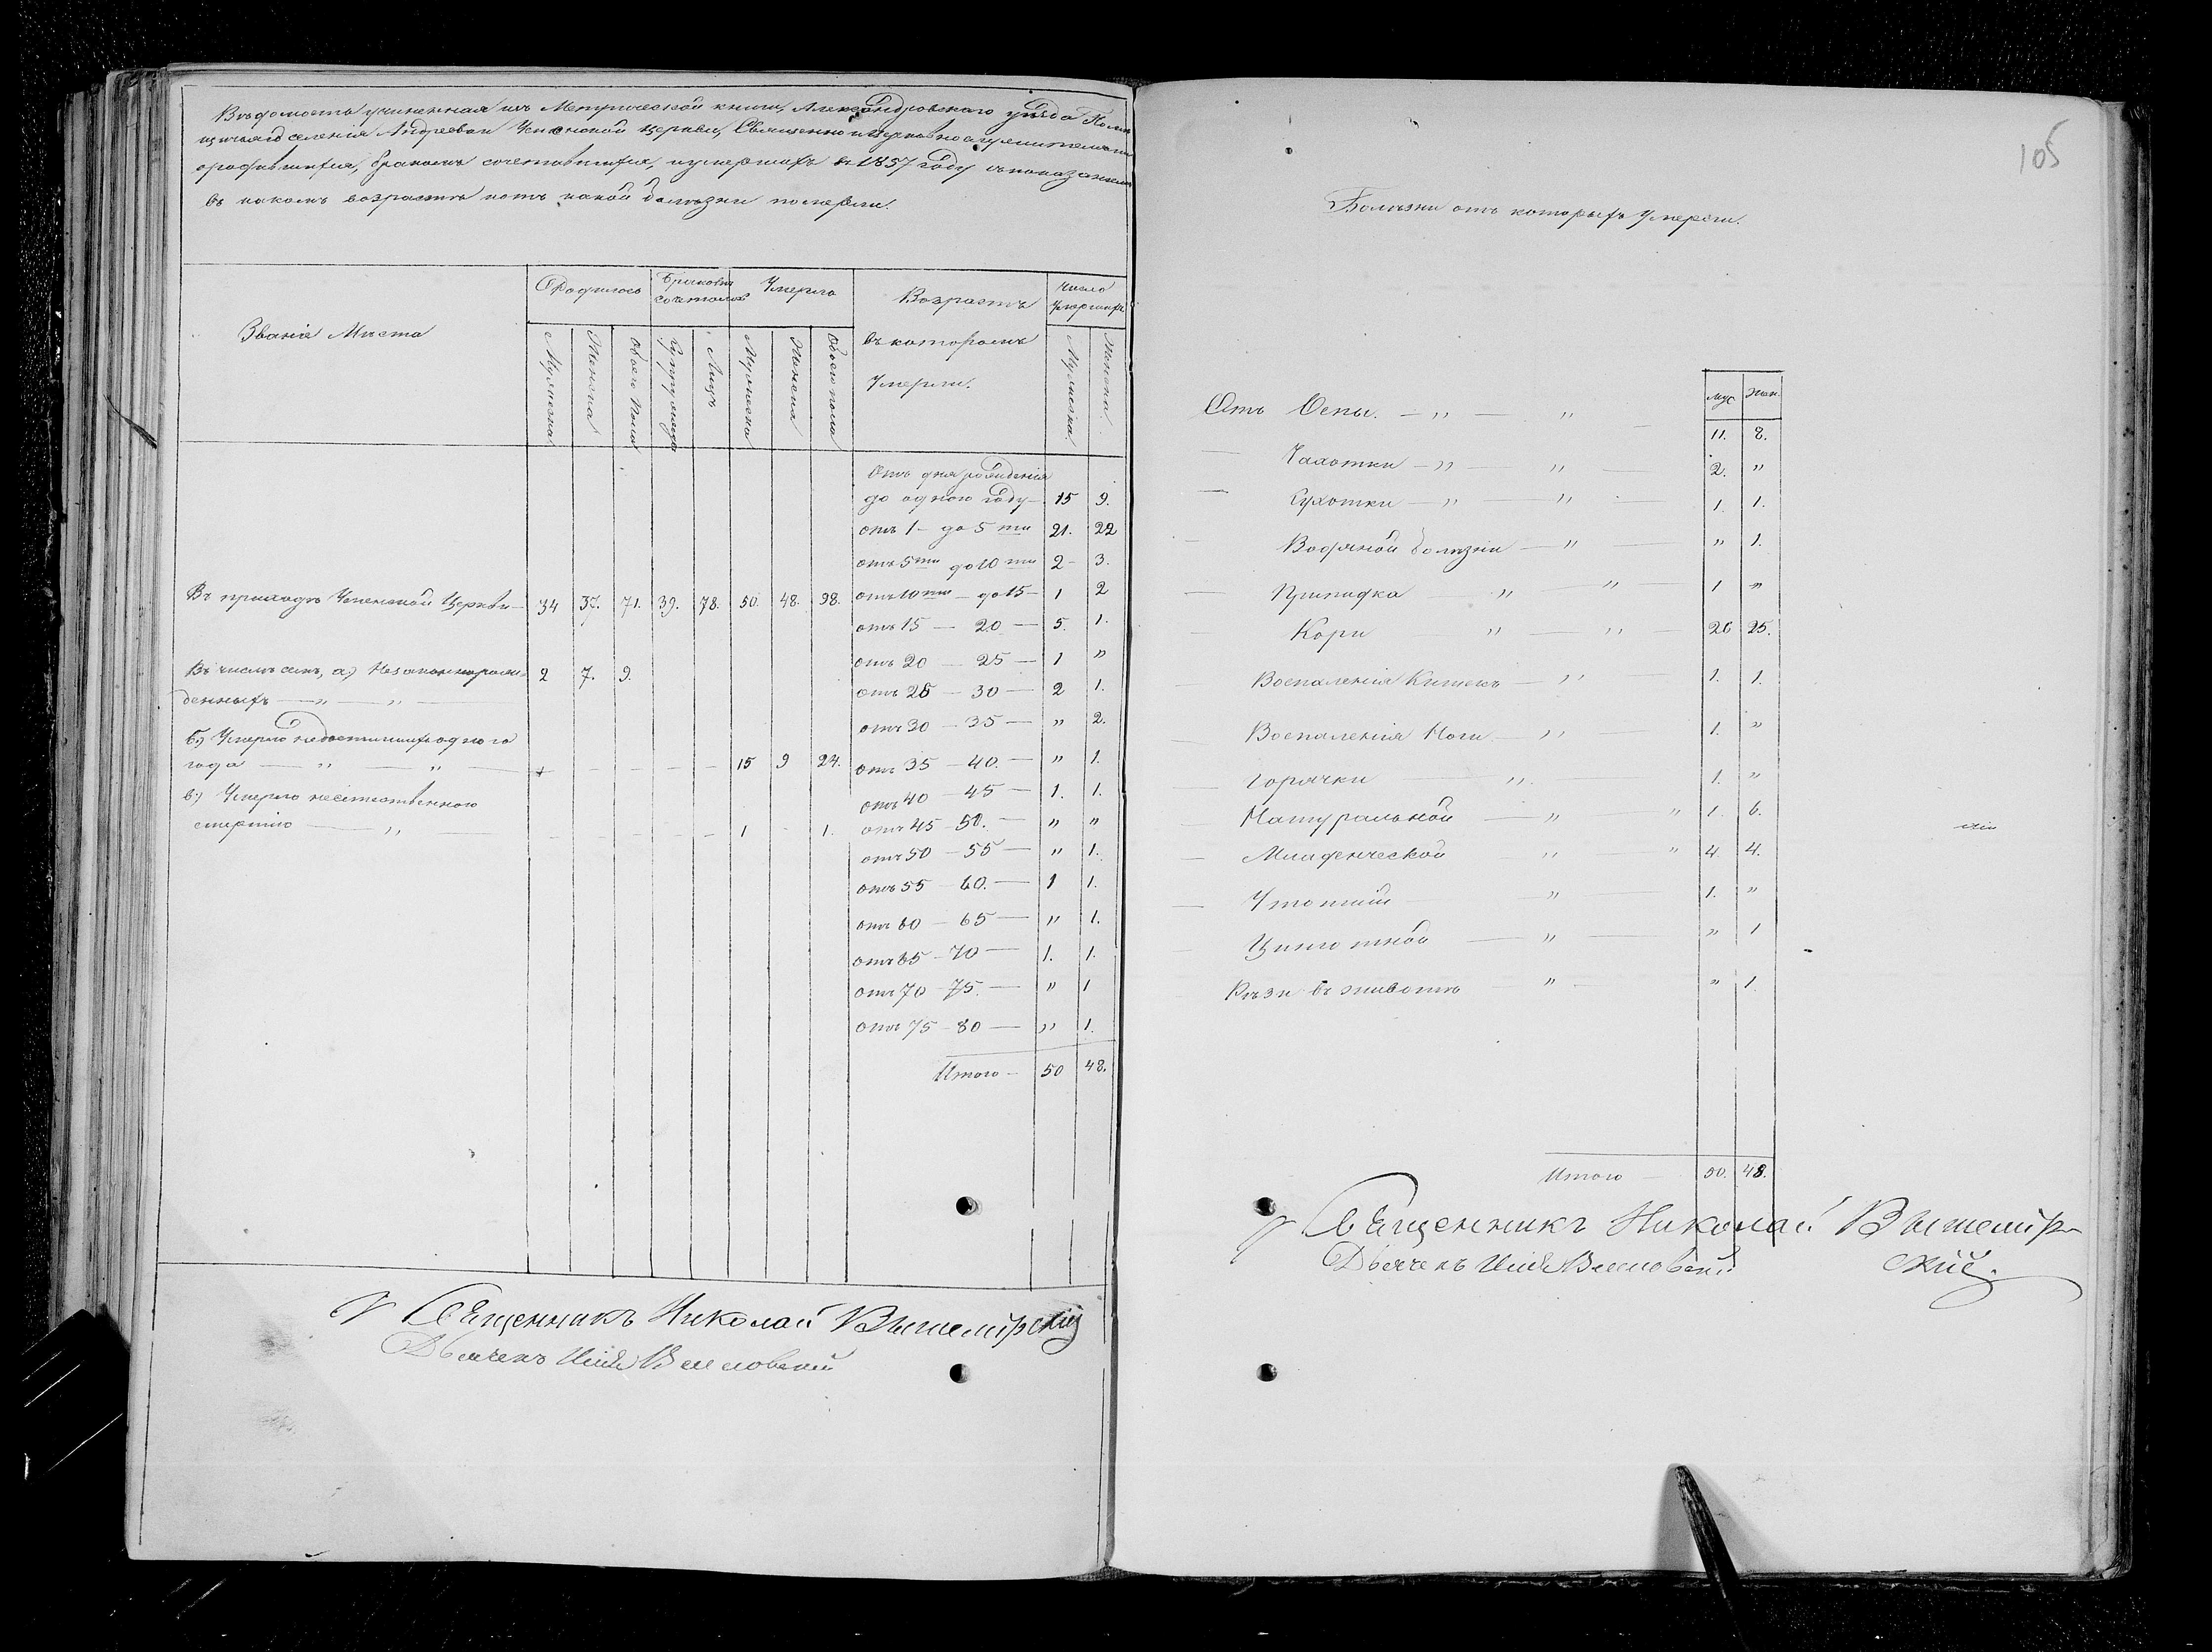 Ведомость учиненная изъ Метрической книги, Александровскаго уѣзда Помѣ
щичьяго селенія Андреевки Успенской Церкви, Священно и церковнослужителями
о родившихся, бракомъ сочетавшихся, и умершихъ въ 1857 году съ показаніемъ
въ какомъ возрастѣ и отъ какой болѣзни померли.
Званіе Мѣста
Родилось
Бракомъ сочеталось
Умерло
Возрастъ въ которомъ Умерли.
Число Умершихъ
Мужеска Женска Обоего Пола Супружествъ Лицъ Мужеска Женска Обоего пола Мужеска. Женска.
Отъ дня рожденія
до одного году — 15 9.
отъ 1 — до 5 ти 21. 22
отъ 5 ти до 10 ти 2 - 3.
Въ приходѣ Успенской Церкви — 34 37. 71. 39. 78. 50. 48. 98. отъ 10 ти — до 15 — 1 2
отъ 15 — 20 — 5. 1.
Въ числѣ сихъ, а) Незаконнорож- 2 7. 9. отъ 20 — 25 — 1 "
денныхъ — " — " — отъ 25 — 30 — 2 1.
б.) Умерло недостигшихъ одного отъ 30 — 35 — " 2.
года — " — " — 15 9 24. отъ 35 — 40. — " 1.
в.) Умерло неестественною отъ 40 — 45 — 1. 1.
смертію — " — 1 - 1. отъ 45 - 50. — " "
отъ 50 — 55 — " 1.
отъ 55 - 60. — 1 1.
отъ 60 — 65 — " 1.
отъ 65 - 70 — 1. 1.
отъ 70 - 75. — " 1
отъ 75 - 80 — " 1.
Итого — 50 48.
Священникъ Николай Вышемірскій
Дьячекъ
105
Болѣзни отъ которыхъ Умерли.
муж. жен.
Отъ Оспы. — " — " 11. 8.
— Чахотки — " — " 2. "
— Сухотки — " — " 1. 1.
— Водяной болѣзни — " — " 1.
— Припадка — " — " — 1 "
— Кори " — " — 26 25.
Воспаленія Кишекъ — " 1. 1.
— Воспаленія Ноги — " — 1. "
— Горячки — " 1. "
— Натуральной — " — " 1. 6.
— Младенческой " " 4. 4.
— Утопшій — " — 1. "
— Цынготной — " — " 1
Рѣзи въ животѣ — " — " 1.
Итого — 50. 48.
Священникъ Николай Вышемір-
скій.
Дьячекъ